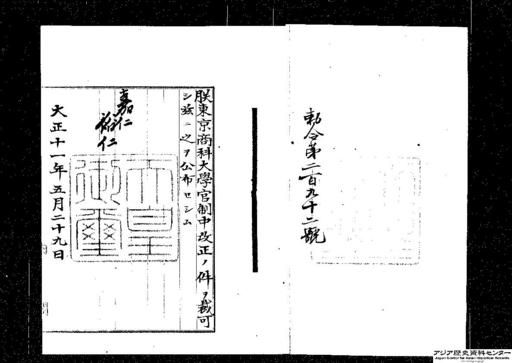 勅令第二百九十二號
朕東京商科大學官制中改正ノ件ヲ裁可
シ茲ニ之ヲ公布セシム
嘉仁
裕仁
天皇
御璽
大正十一年五月二十九日
アジア歴史資料センター
Japan Center for Asian Historical Records